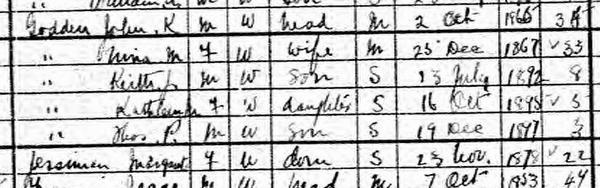 Godden John K M W head M 2 Oct 1866 34
" Nina M F W wife M 25 Dec 1867 33
" Keith J M W son S 13 July 1892 8
" Kathleen F W daughter S 16 Oct 1895 5
" Thos. P. M W son S 19 Dec 1897 3
Jessiman Margaret F W dom S 23 Nov. 1878 22
M W head M 7 Oct 1853 47